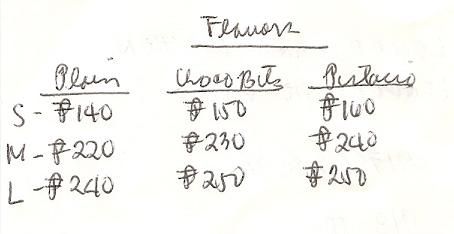 Flavors
Plain Choco Bits Pistacio
S - ₱140 ₱150 ₱160
M - ₱220 ₱230 ₱240
L - ₱240 ₱250 ₱250